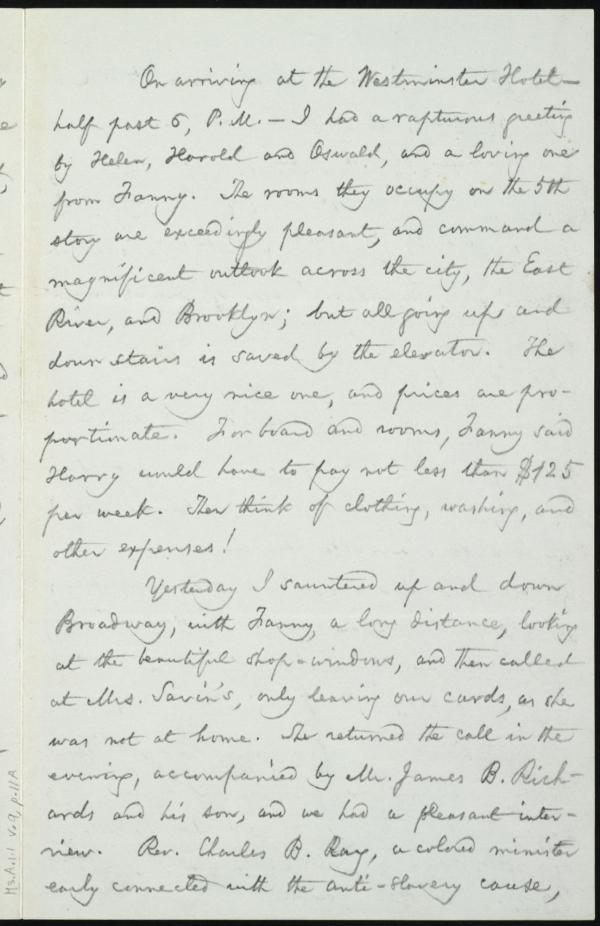 On arriving at the Westminster Hotel—
half past 6, P.M.— I had a rapturous greeting
by Helen, Harold and Oswald, and a loving one
from Fanny. The rooms they occupy on the 5th
story are exceedingly pleasant, and command a
magnificent outlook across the city, the East
River, and Brooklyn; but all going up and
down stairs is saved by the elevator. The
hotel is a very nice one, and prices are pro-
portionate. For board and rooms, Fanny said
Harry would have to pay not less than $125
per week. Then think of clothing, washing, and
other expenses!
Yesterday I sauntered up and down
Broadway, with Fanny, a long distance, looking
at the beautiful shop-windows, and then called
at Mrs. Savin's, only leaving our cards, as she
was not at home. She returned the call in the
evening, accompanied by Mr. James B. Rich-
ards and his son, and we had a pleasant inter-
view. Rev. Charles B. Ray, a colored minister
early connected with the anti-slavery cause,
Ms.A.1.1 v.9, p.11A